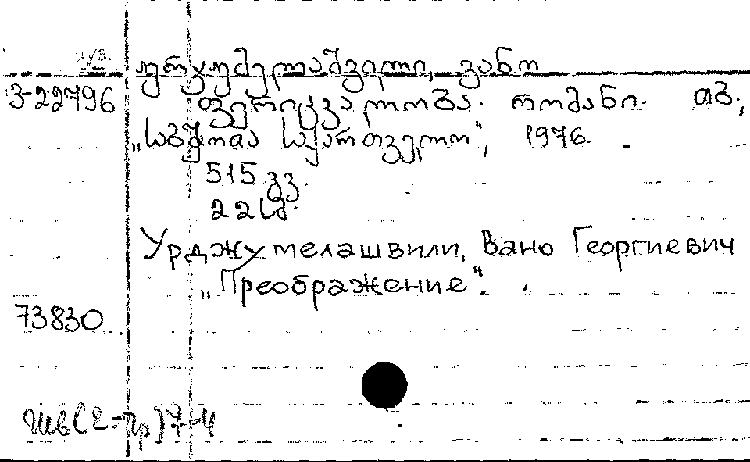 ურჯუმელაშვილი, ვანო
3-22796 ფერიცვალობა. რომანი. თბ.,
„საბჭოთა საქართველო“, 1976.
515 გვ.
22 სმ.
Урджумелашвили, Вано Георгиевич
„Преображение“.
73830